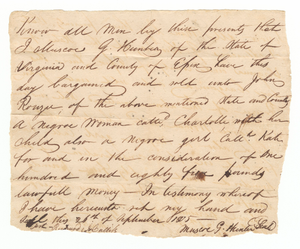 Know all Men by these presents that
I Muscoe G. Hunter of the State of
Virginia and County of Essex have this
day bargained and sold unto John
Rouzee of the above mentioned State and County
A Negroe Woman called Charlotte with her
child also a Negroe girl Call'd Kate
for and in the consideration of one
hundred and eighty four pounds
lawfull money — In testimony whereof
I have hereunto set my hand and
seal this 28th of September 1805
Muscoe G Hunter Seal